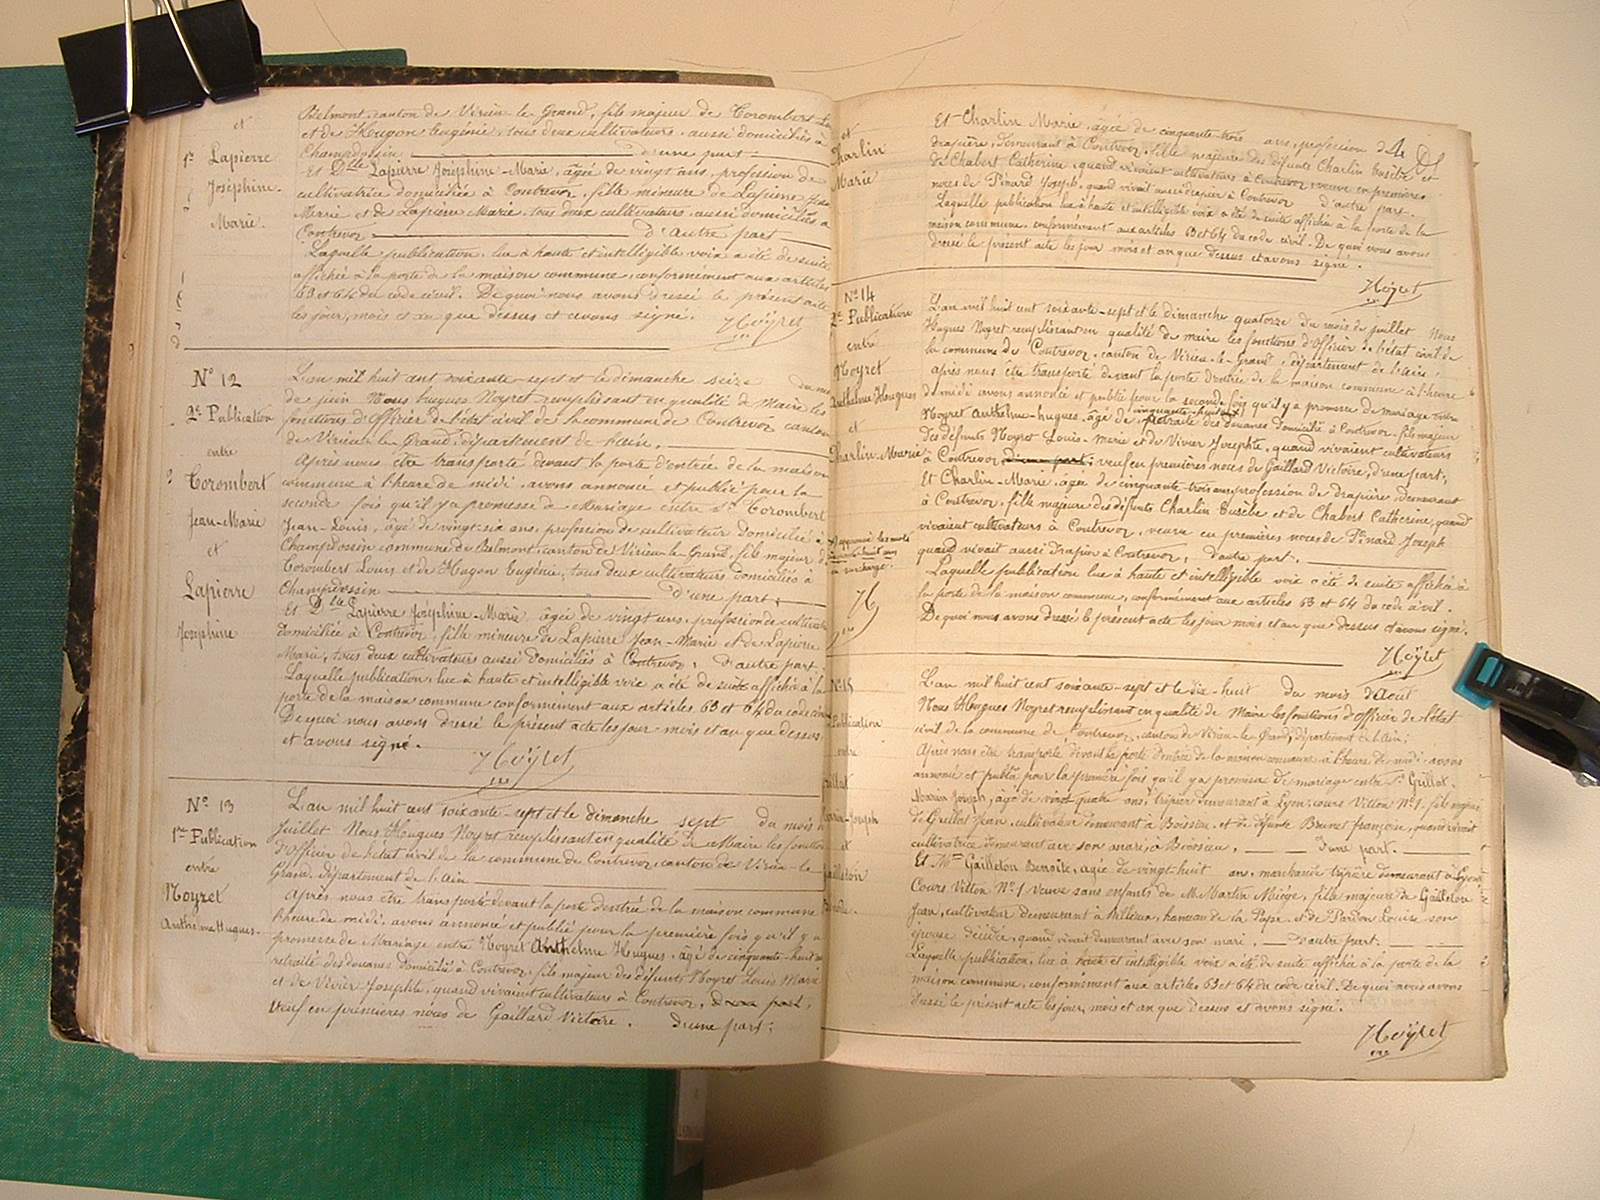 Belmont, canton de Virieu le Grand, fils majeur de Corombert
et de Hugon Eugénie, tous deux cultivateurs, aussi domiciliés à
Champdossin d'une part.
et
1re Lapierre
Joséphine-
Marie.
Et Dlle Lapierre Joséphine-Marie, âgée de vingt ans, profession de
cultivatrice domiciliée à Contrevoz, fille mineure de Lapierre Jean
Marie et de Lapierre Marie, tous deux cultivateurs aussi domiciliés à
Contrevoz d'autre part
Laquelle publication, lue à haute et intelligible voix a été de suite
affichée à la porte de la maison commune, conformément aux articles
63 et 64 du code civil. De quoi nous avons dressé le présent acte
les jour, mois et an que dessus et avons signé.
Noÿret
No 12
2e Publication
entre
Corombert
Jean-Marie
et
Lapierre
Joséphine
L'an mil huit cent soixante-sept et le dimanche seize du mois
de juin Nous hugues Noyret remplissant en qualité de Maire les
fonctions d'Officier de l'état civil de la commune de Contrevoz canton
de Virieu le Grand, département de l'ain.
Après nous être transporté devant la porte d'entrée de la maison
commune à l'heure de midi, avons annoncé et publié pour la
seconde fois qu'il y a promesse de Mariage entre Sr Corombert
Jean-Louis, âgé de vingt-six ans, profession de cultivateur domicilié à
Champdossin commune de Belmont, canton de Virieu-le Grand, fils majeur de
Corombert Louis et de Hugon Eugénie, tous deux cultivateurs domiciliés à
Champdossin d'une part;
Et Dlle Lapierre Joséphine-Marie âgée de vingt ans, profession de cultivatrice
domiciliée à Contrevoz, fille mineure de Lapierre Jean-Marie et de Lapierre
Marie, tous deux cultivateurs aussi domiciliés à Contrevoz, d'autre part.
Laquelle publication, lue à haute et intelligible voix a été de suite affichée à la
porte de la maison commune conformément aux articles 63 et 64 du code civil.
De quoi nous avons dressé le présent acte les jour mois et an que dessus
et avons signé.
Noÿret
No 13
1re Publication
entre
Noyret
Anthelme Hugues.
L'an mil huit cent soixante-sept et le dimanche sept du mois de
Juillet Nous Hugues Noyret remplissant en qualité de Maire les fonctions
d'Officier de l'état civil de la commune de Contrevoz, canton de Virieu-le
Grand, département de l'ain
Après nous être transporté devant la porte d'entrée de la maison commune
l'heure de midi, avons annoncé et publié pour la première fois qu'il y a
promesse de Mariage entre Noyret Anthelme Hugues, âgé de cinquante-huit ans
retraité des douanes domicilié à Contrevoz, fils majeur des défunts Noyret Louis Marie
et de Vivier Josephte, quand vivaient cultivateurs à Contrevoz, d'une part,
veuf en premières noces de Gaillard Victoire. d'une part;
et
Charlin
Marie
Et Charlin Marie, âgée de cinquante-trois ans, profession de
drapière, demeurant à Contrevoz, fille majeure des défunts Charlin Eusèbe et
de Chabert Catherine, quand vivaient cultivateurs à Contrevoz veuve en premières
noces de Pinard Joseph, quand vivait aussi drapier à Contrevoz d'autre part.
Laquelle publication lue à haute et intelligible voix a été de suite affichée à la porte de la
maison commune, conformément aux articles 63 et 64 du code civil. De quoi nous avons
dressé le présent acte les jour mois et an que dessus et avons signé.
Noÿret
No 14
2e Publication
entre
Noyret
Anthelme Hugues
et
Charlin Marie
L'an mil huit cent soixante-sept et le dimanche quatorze du mois de juillet Nous
Hugues Noyret remplissant en qualité de maire les fonctions d'Officier de l'état civil de
la commune de Contrevoz, canton de Virieu-le-Grand, département de l'ain.
après nous être transporté devant la porte d'entrée de la maison commune à l'heure
de midi avons annoncé et publié pour la seconde fois qu'il y a promesse de mariage entre
Noyret Anthelme-hugues, âgé de cinquante-huit ans retraité des douanes domicilié à Contrevoz, fils majeur
des défunts Noyret Louis-Marie et de Vivier Josephte, quand vivaient cultivateurs
à Contrevoz, d'une part; veuf en premières noces de Gaillard Victoire, d'une part;
Et Charlin-Marie, âgée de cinquante-trois ans, profession de drapière, demeurant
à Contrevoz, fille majeure des défunts Charlin Eusèbe et de Chabert Catherine, quand
vivaient cultivateurs à Contrevoz, veuve en premières noces de Pinard Joseph
quand vivait aussi drapier à Contrevoz, d'autre part.
Laquelle publication lue à haute et intelligible voix a été de suite affichée à
la porte de la maison commune, conformément aux articles 63 et 64 du code civil.
De quoi nous avons dressé le présent acte les jour mois et an que dessus et avons signé.
approuvé les mots
cinquante-huit ans
en surcharge.
N
Noÿret
No 15
Publication
entre
Grillat
Marin-Joseph
et
Gailleton
Benoite.
L'an mil huit cent soixante-sept et le dix-huit du mois d'Août
Nous Hugues Noyret remplissant en qualité de Maire les fonctions d'Officier de l'état
civil de la commune de Contrevoz, canton de Virieu-le Grand, département de l'ain;
Après nous être transporté devant la porte d'entrée de la maison commune à l'heure de midi avons
annoncé et publié pour la première fois qu'il y a promesse de mariage entre Sr Grillat
Marin Joseph, âgé de vingt quatre ans, tripier demeurant à Lyon, cours Vitton No 1, fils majeur
de Grillat Jean, cultivateur demeurant à Boissieu, et de défunte Brunet françoise, quand vivait
cultivatrice demeurant avec son mari, à Boissieu, d'une part.
Et Mme Gailleton Benoite, âgée de vingt-huit ans, marchande tripière demeurant à Lyon
Cours Vitton No 1 Veuve sans enfants de M. Martin Miège, fille majeure de Gailleton
Jean, cultivateur demeurant à Millieux, hameau de la Pape, et de Pardon Louise son
épouse décédée, quand vivait demeurant avec son mari. d'autre part.
Laquelle publication, lue à haute et intelligible voix a été de suite affichée à la porte de la
maison commune, conformément aux articles 63 et 64 du code civil. De quoi nous avons
dressé le présent acte les jour, mois et an que dessus et avons signé.
Noÿret